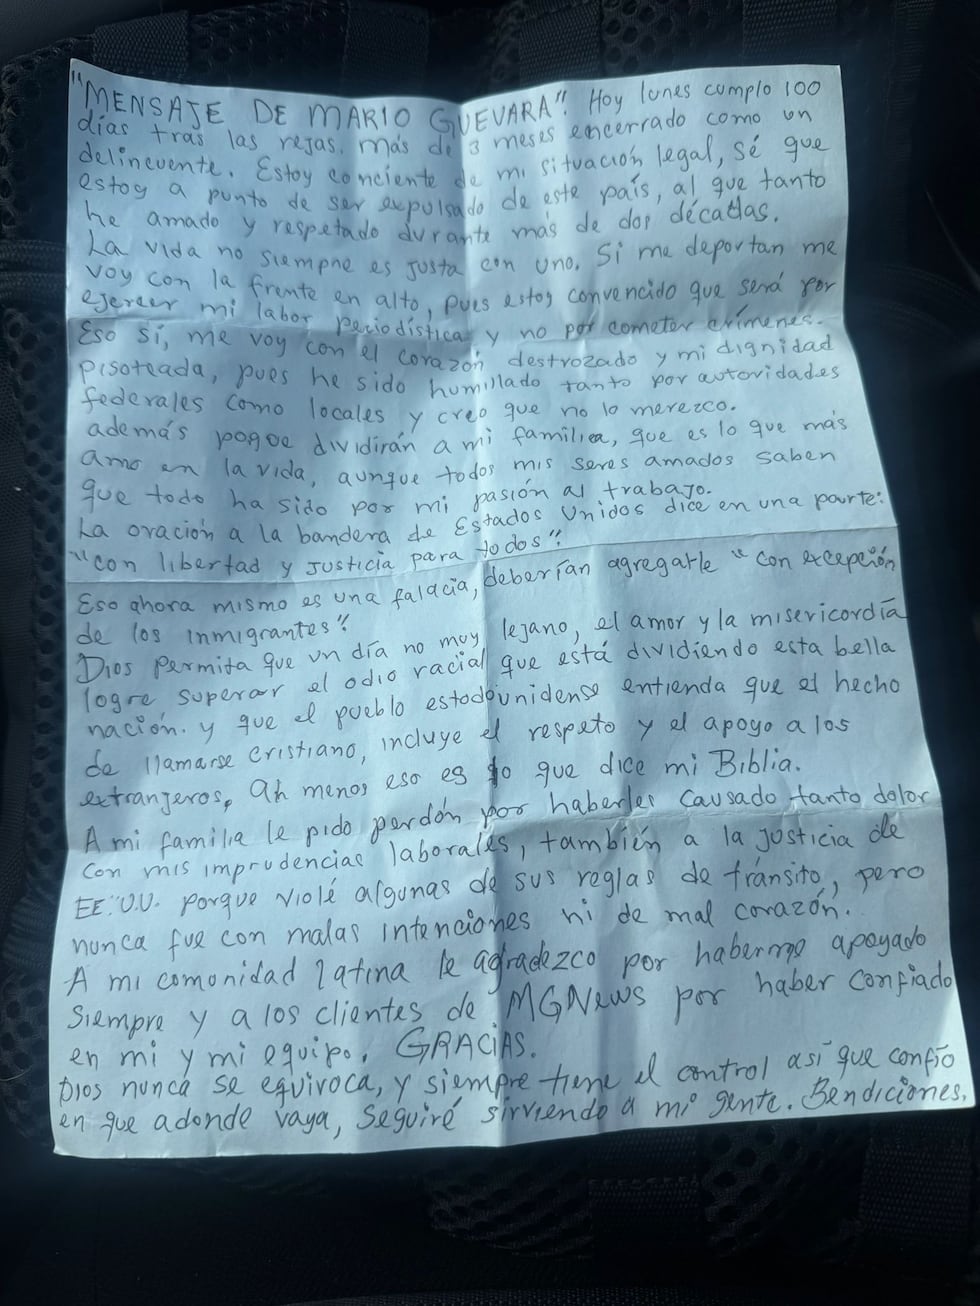 "MENSAJE DE MARIO GUEVARA". Hoy lunes cumplo 100
días tras las rejas. más de 3 meses encerrado como un
delincuente. Estoy conciente de mi situación legal, sé que
estoy a punto de ser expulsado de este país, al que tanto
he amado y respetado durante más de dos décadas.
La vida no siempre es justa con uno. Si me deportan me
voy con la frente en alto, pues estoy convencido que será por
ejercer mi labor periodística y no por cometer crímenes.
Eso sí, me voy con el corazón destrozado y mi dignidad
pisoteada, pues he sido humillado tanto por autoridades
federales como locales y creo que no lo merezco.
además poque dividirán a mi familia, que es lo que más
amo en la vida, aunque todos mis seres amados saben
que todo ha sido por mi pasión al trabajo.
La oración a la bandera de Estados Unidos dice en una parte:
"con libertad y justicia para todos".
Eso ahora mismo es una falacia, deberían agregarle "con excepción
de los inmigrantes".
Dios permita que un día no muy lejano, el amor y la misericordia
logre superar el odio racial que está dividiendo esta bella
nación. y que el pueblo estadounidense entienda que el hecho
de llamarse cristiano, incluye el respeto y el apoyo a los
extranjeros, Ah menos eso es lo que dice mi Biblia.
A mi familia le pido perdón por haberles causado tanto dolor
con mis imprudencias laborales, también a la justicia de
EE.UU. porque violé algunas de sus reglas de tránsito, pero
nunca fue con malas intenciones ni de mal corazón.
A mi comunidad latina le agradezco por haberme apoyado
siempre y a los clientes de MGNews por haber confiado
en mi y mi equipo. GRACIAS.
Dios nunca se equivoca, y siempre tiene el control así que confío
en que adonde vaya, seguiré sirviendo a mi gente. Bendiciones.